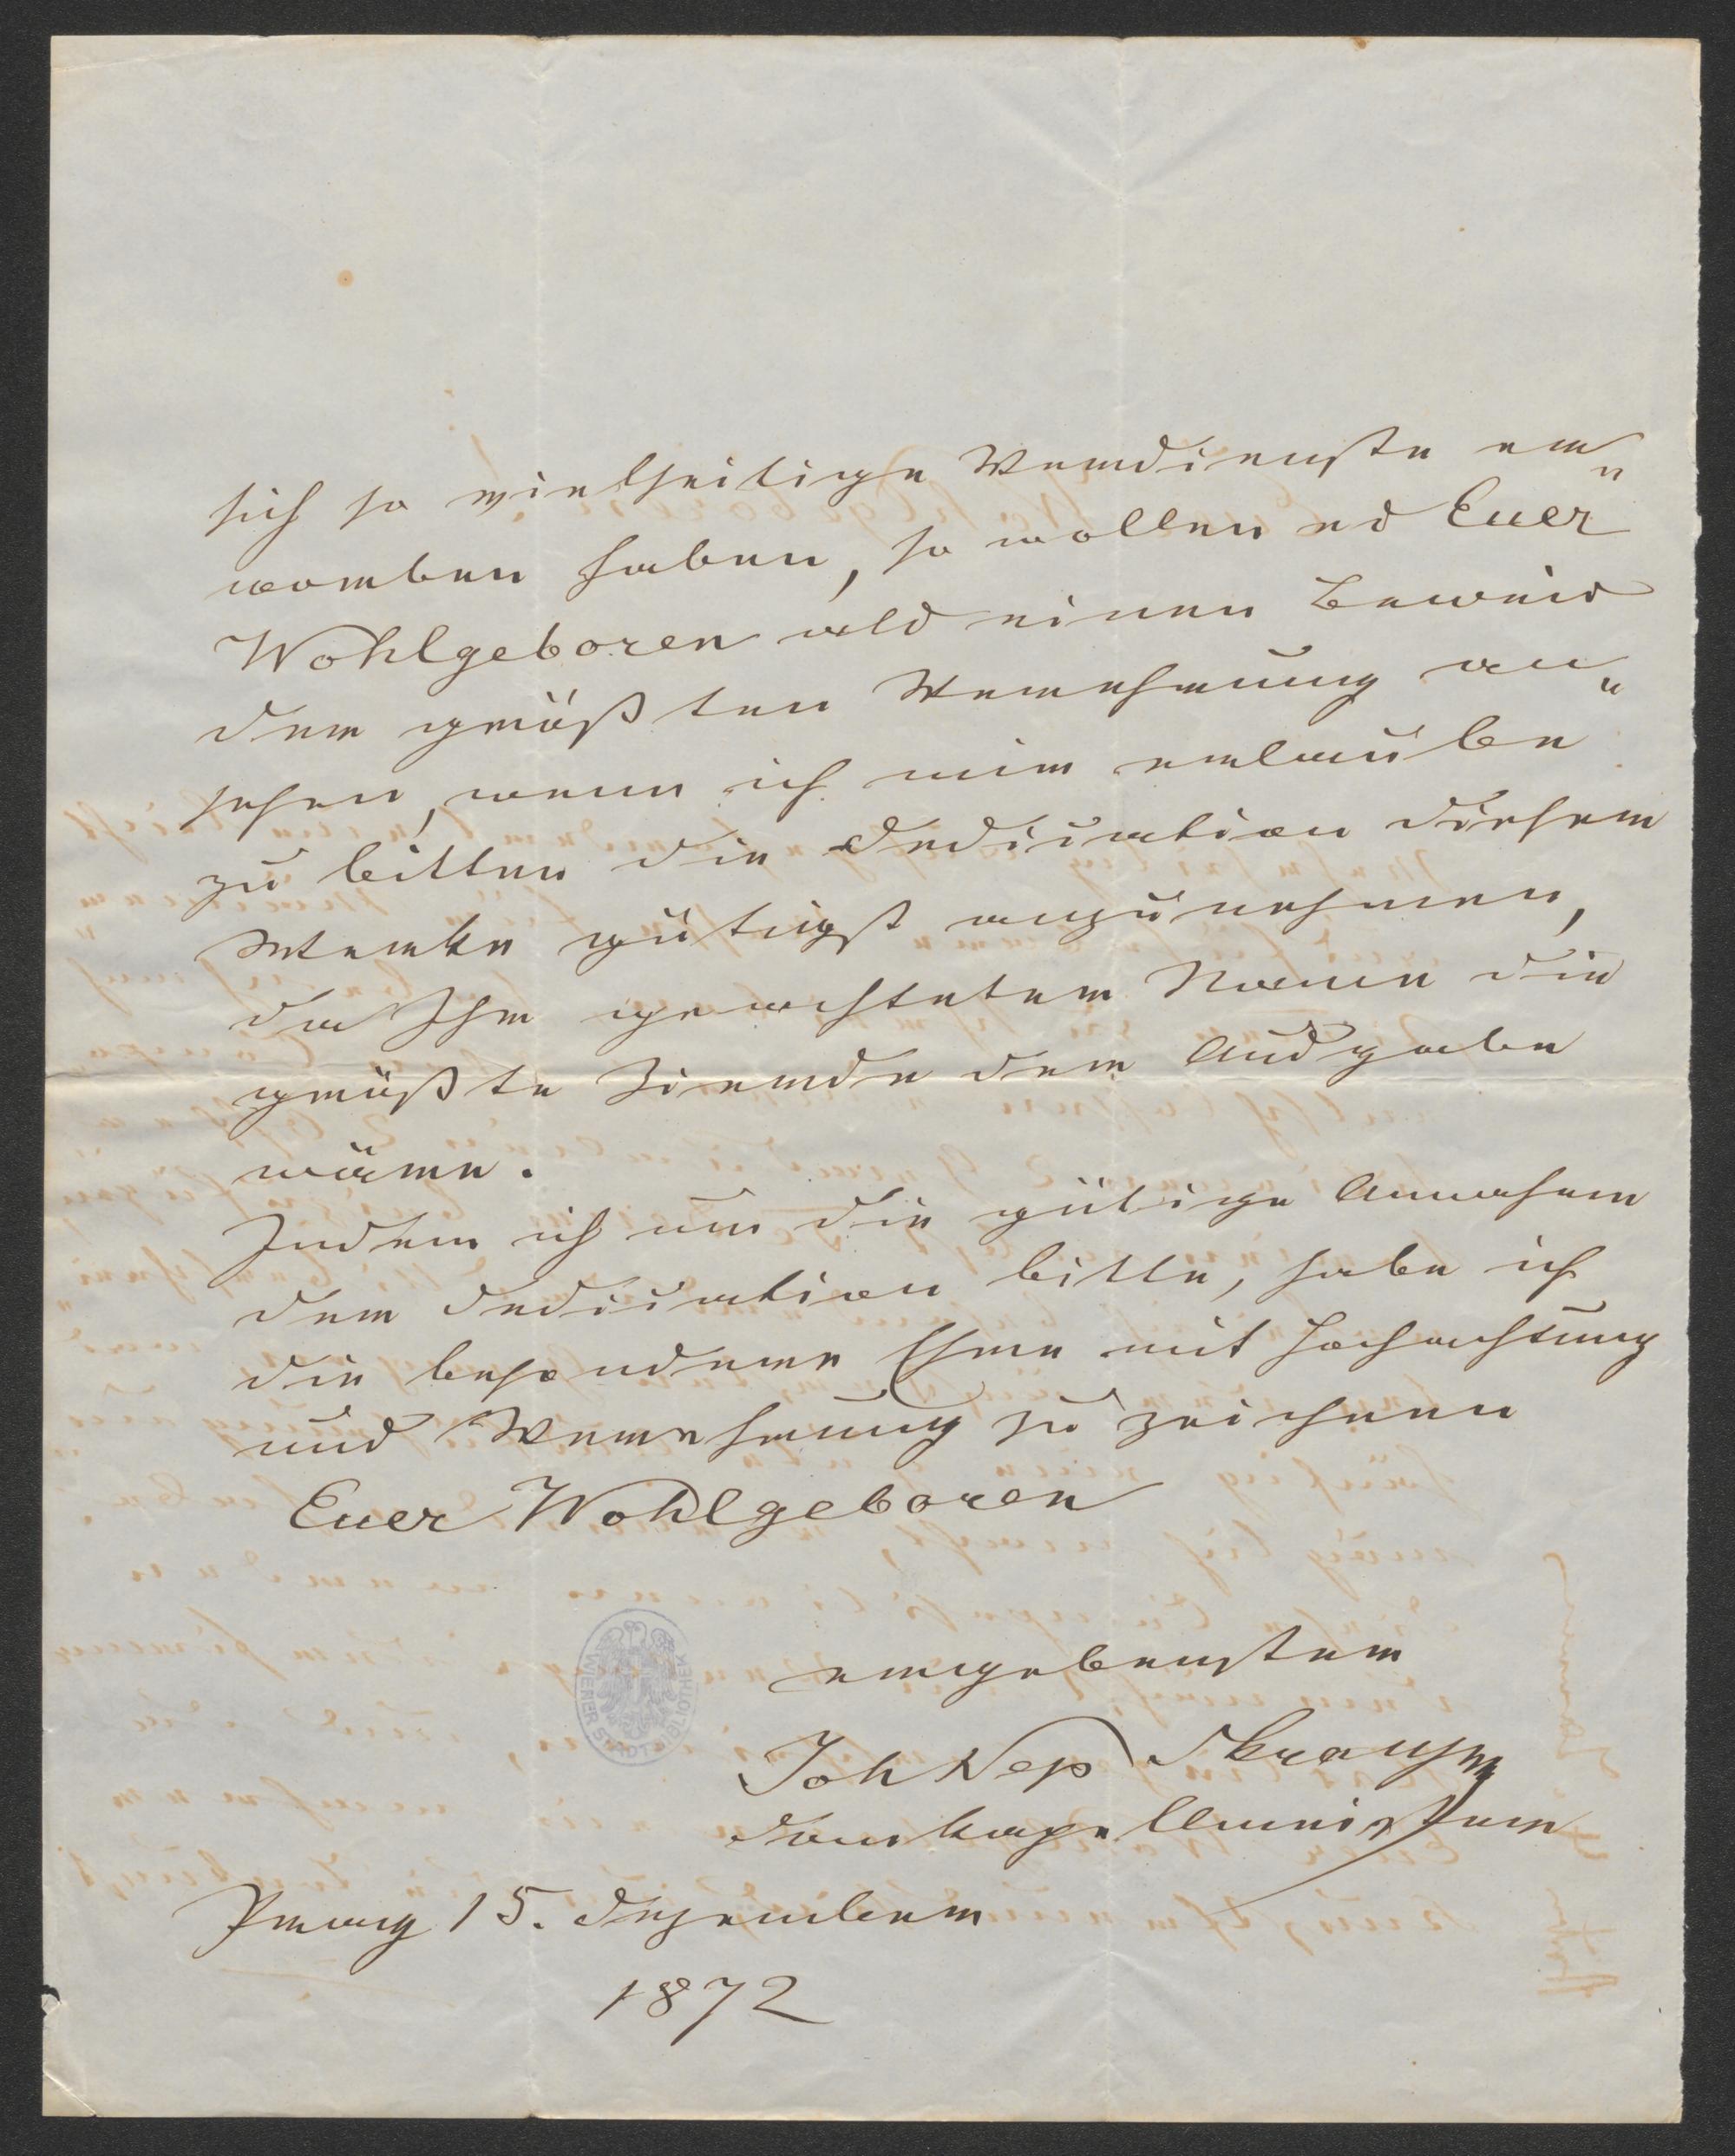 sich so vielseitige Verdienste er„
worben haben, so wollen es Euer
Wohlgeboren als einen Beweis
der größten Verehrung an„
sehen, wenn ich mir erlaube
zu bitten die Dedication dieser
Werke gütigst anzunehmen,
da Ihr geachteter Name die
größte Zierde der Ausgabe
wäre.
Indem ich um die gütige Annahme
der Dedication bitte, habe ich
die besondere Ehre mit Hochachtung
und Verehrung zu zeichnen
Euer Wohlgeboren
ergebenster
Joh Nep Skraup
Domkapellmeister
Prag 15. Dezember
1872
WIENER STADT-BIBLIOTHEK